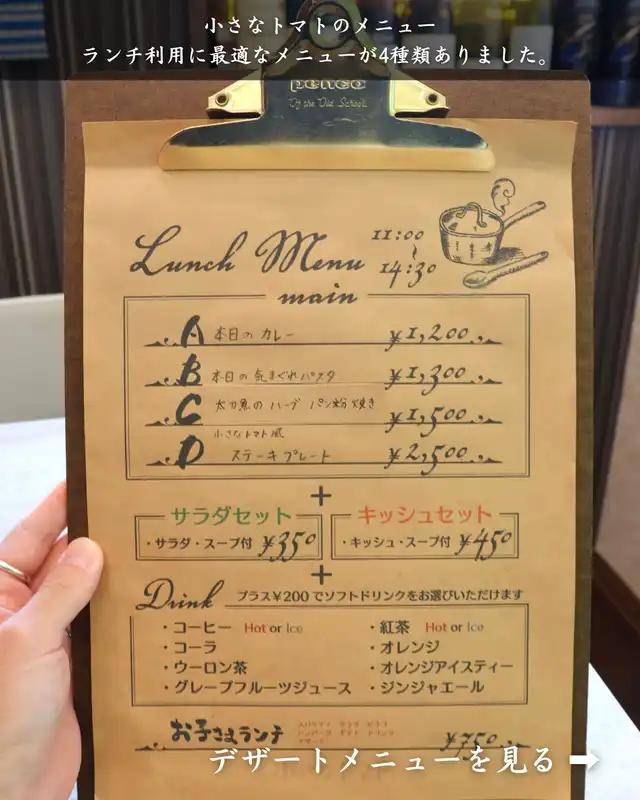 小さなトマトのメニュー
ランチ利用に最適なメニューが4種類ありました。
penco
Of the Old School
Lunch Menu 11:00
~
14:30
main
A 本日のカレー ¥1,200
B 本日の気まぐれパスタ ¥1,300
C 太刀魚のハーブ パン粉焼き ¥1,500
小さなトマト風
D ステーキプレート ¥2,500
+
サラダセット キッシュセット
・サラダ・スープ付 ¥350 ・キッシュ・スープ付 ¥450
+
Drink プラス¥200でソフトドリンクをお選びいただけます
・コーヒー Hot or Ice ・紅茶 Hot or Ice
・コーラ ・オレンジ
・ウーロン茶 ・オレンジアイスティー
・グレープフルーツジュース ・ジンジャエール
お子さまランチ ¥750
デザートメニューを見る ➡